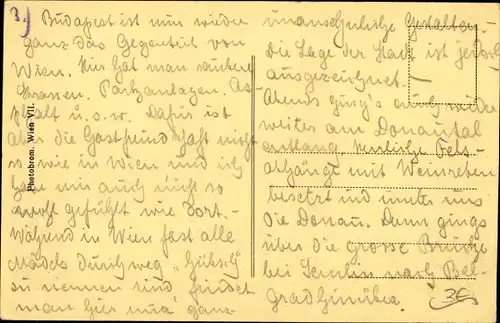 3.)
Budapest ist nun wieder
ganz das Gegenteil von
Wien. Hier hat man saubere
Strassen. Parkanlagen. As-
phalt u.s.w. Dafür ist
aber die Gastfreundschaft nicht
so wie in Wien und ich
habe mir auch nicht so
wohl gefühlt wie dort.-
Während in Wien fast alle
Mädels durchweg "hübsch"
zu nennen sind, findet
man hier nur ganz
unansehnliche Gestalten.
Die Lage der Stadt ist jedoch
ausgezeichnet. -
Abends ging's auch wieder
weiter am Donautal
entlang. Herrliche Fels-
abhänge mit Weinreben
besetzt und unter uns
die Donau. Dann gings
über die grosse Brücke
bei Semlin nach Bel-
grad hinüber.
Photobrom, Wien VII.
3E